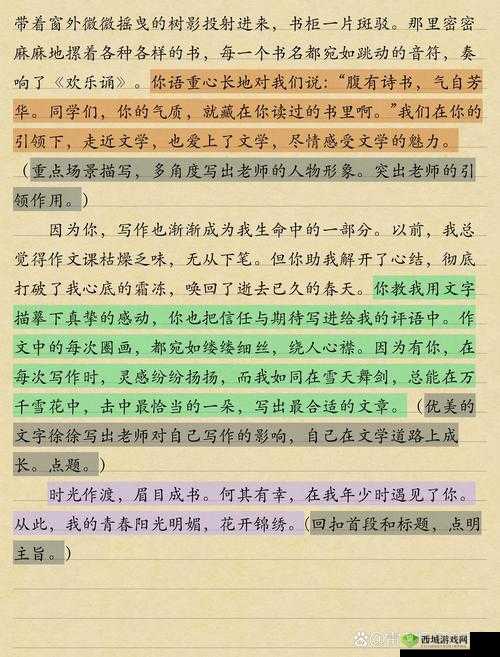 带着窗外微微摇曳的树影投射进来，书柜一片斑驳。那里密密
麻麻地摞着各种各样的书，每一个书名都宛如跳动的音符，奏
响了《欢乐诵》。你语重心长地对我们说：“腹有诗书，气自芳
华。同学们，你的气质，就藏在你读过的书里啊。”我们在你的
引领下，走近文学，也爱上了文学，尽情感受文学的魅力。
（重点场景描写，多角度写出老师的人物形象。突出老师的引
领作用。）
因为你，写作也渐渐成为我生命中的一部分。以前，我总
觉得作文课枯燥乏味，无从下笔。但你助我解开了心结，彻底
打破了我心底的霜冻，唤回了逝去已久的春天。你教我用文字
描摹下真挚的感动，你也把信任与期待写进给我的评语中。作
文中的每次圈画，都宛如缕缕细丝，绕人心襟。因为有你，在
每次写作时，灵感纷纷扬扬，而我如同在雪天舞剑，总能在万
千雪花中，击中最恰当的一朵，写出最合适的文章。（优美的
文字徐徐写出老师对自己写作的影响，自己在文学道路上成
长。点题。）
时光作渡，眉目成书。何其有幸，在我年少时遇见了你。
从此，我的青春阳光明媚，花开锦绣。（回扣首段和标题，点明
主旨。）
西城游戏网